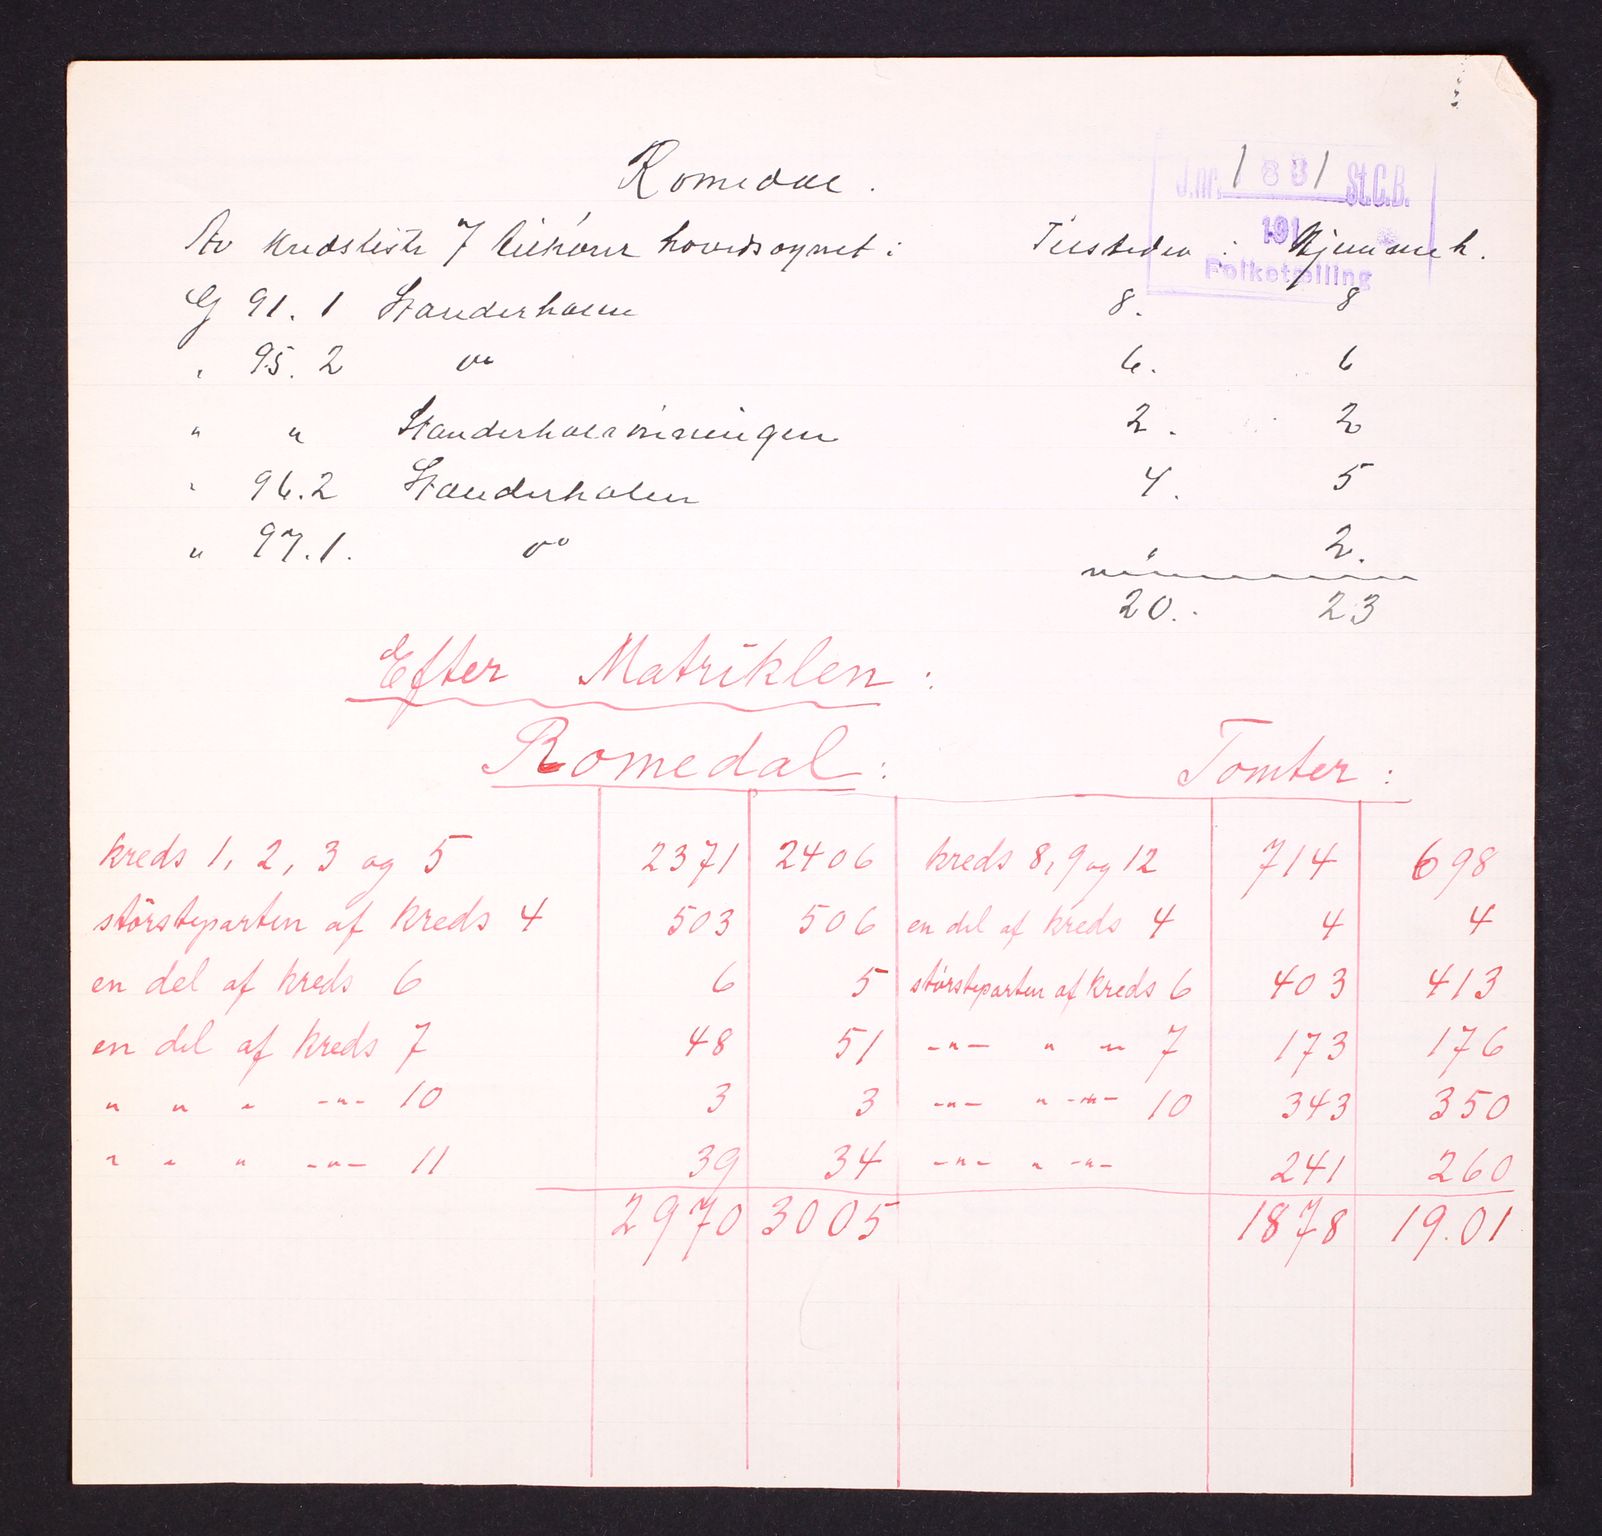 Romedal.
J.nr. 1831 St.C.B.
191
Folketælling
Av kredsliste 7 tilhører hovedsognet: Tilstedev: Hjemmeh.
G 91.1 Standerholen 8. 8
„ 95.2 do 6. 6
„ „ Standerholsvinningen 2. 2
„ 96.2 Standerholen 4. 5
„ 97.1. do „ 2.
20. 23
Efter Matriklen:
Romedal: Tomter:
kreds 1, 2, 3 og 5 2371 2406 kreds 8, 9 og 12 714 698
størsteparten af kreds 4 503 506 en del af kreds 4 4 4
en del af kreds 6 6 5 størsteparten af kreds 6 403 413
en del af kreds 7 48 51 -„- „ „ 7 173 176
„ „ „ -„- 10 3 3 -„- „ -„- 10 343 350
„ „ „ -„- 11 39 34 -„- „ -„- 241 260
2970 3005 1878 19.01